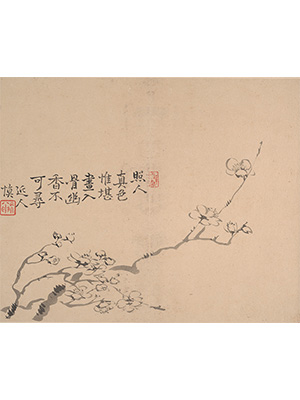 照人
真色
惟堪
畫入
骨幽
香不
可尋